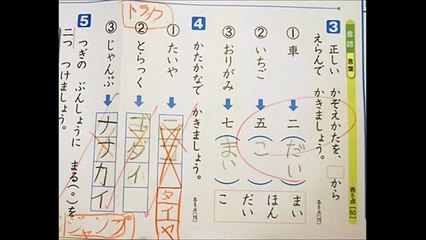 言語 言葉
3 正しい かぞえかたを、□から
えらんで かきましょう。
各5点【50】
① 車 二（だい）
② いちご 五（こ）
③ おりがみ 七（まい）
まい
ほん
だい
こ
4 かたかなで かきましょう。
各5点(15)
① たいや タイヤ
② とらっく トラック
③ じゃんぷ ナナカイ
ジャンプ
5 つぎの ぶんしょうに まる(。)を
二つ つけましょう。